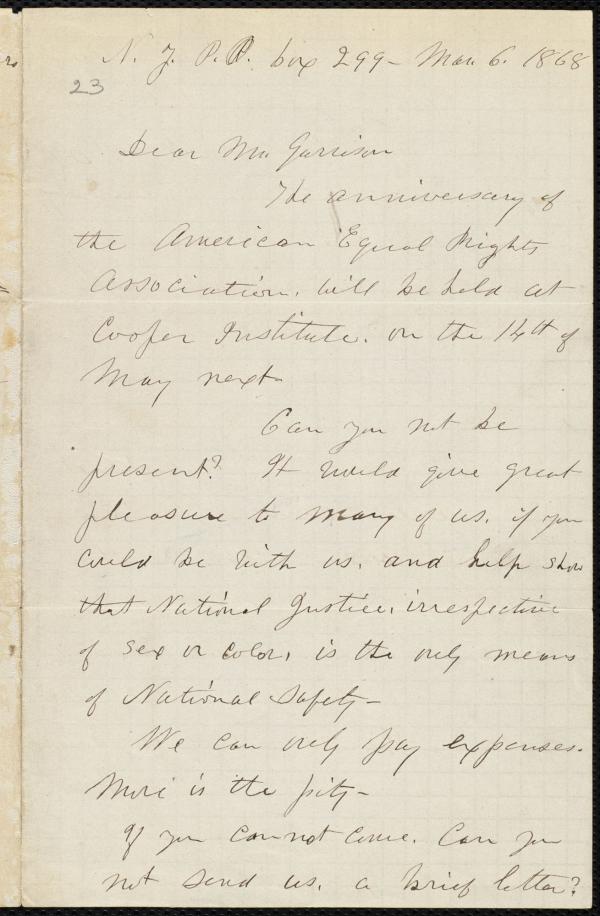 N. Y. P.P. box 299 - Mar. 6. 1868
23
Dear Mr. Garrison
The anniversary of
the American Equal Rights
Association, will be held at
Cooper Institute, on the 14th of
May next -
Can you not be
present? It would give great
pleasure to many of us, if you
could be with us, and help show
that National Justice, irrespective
of sex or color, is the only means
of National Safety -
We can only pay expenses.
More is the pity -
If you cannot come, can you
not send us, a brief letter?